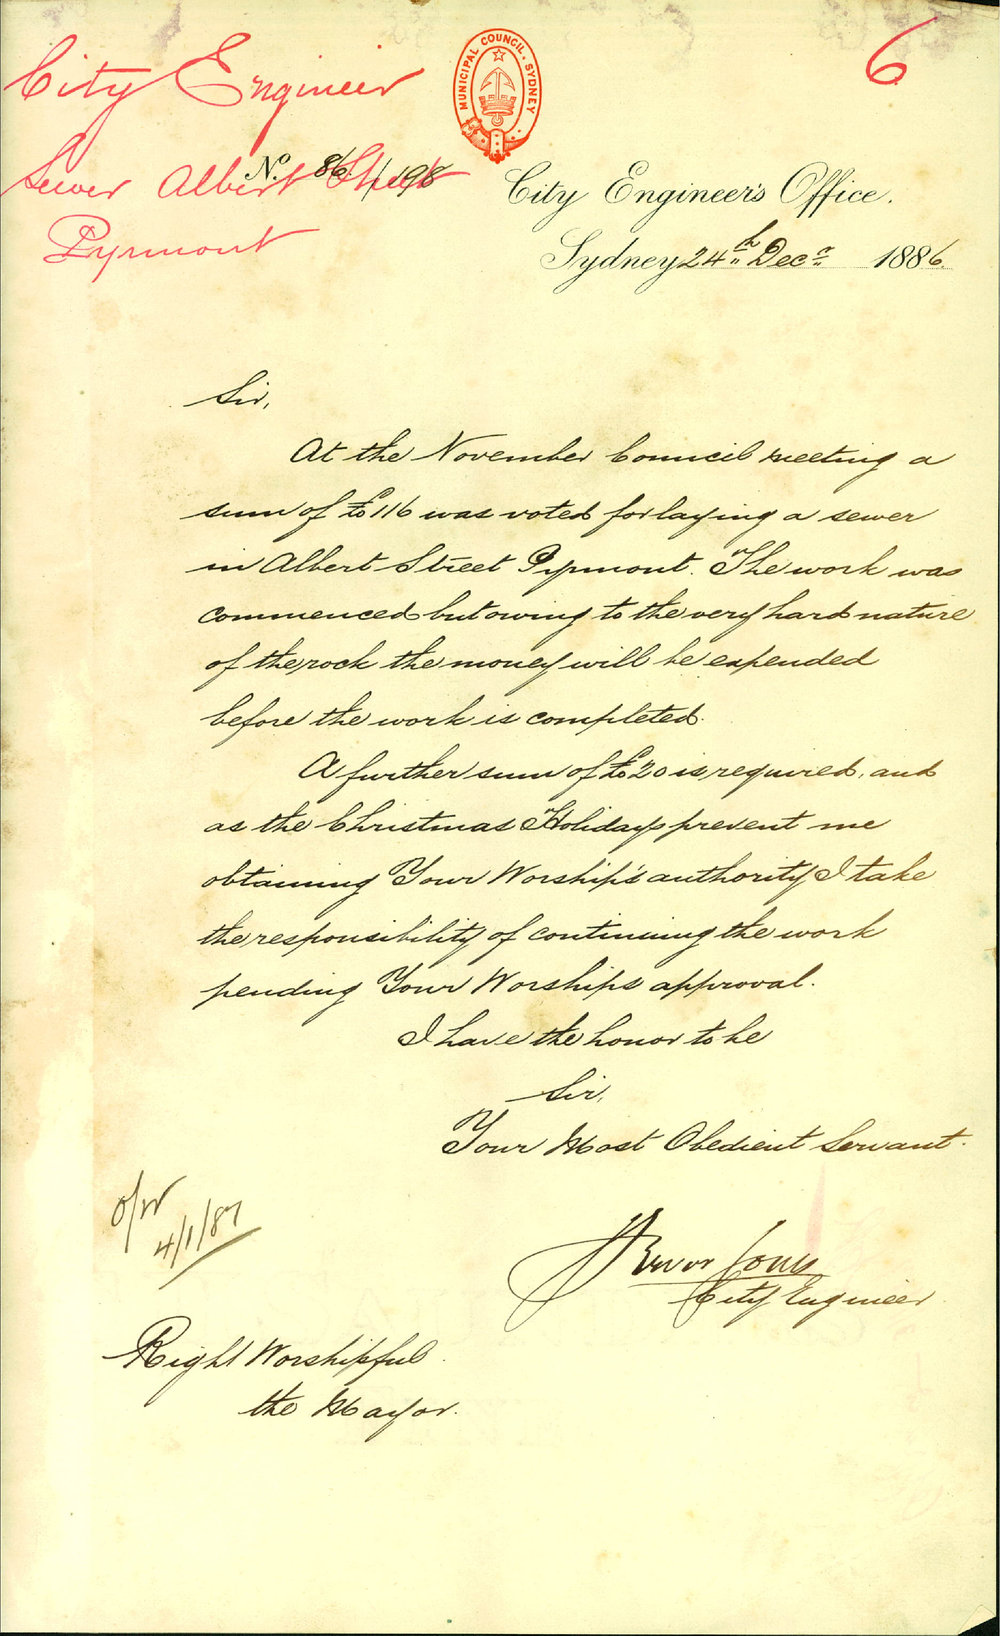 City Engineer
Sewer Albert Street
Pyrmont
6
MUNICIPAL COUNCIL. SYDNEY
No. 86/1198
City Engineer's Office.
Sydney 24th Decr 1886
Sir,
At the November Council meeting a
sum of £116 was voted for laying a sewer
in Albert Street Pyrmont. The work was
commenced but owing to the very hard nature
of the rock the money will be expended
before the work is completed.
A further sum of £20 is required, and
as the Christmas Holidays prevent me
obtaining Your Worship's authority I take
the responsibility of continuing the work
pending Your Worships approval.
I have the honor to be
Sir,
Your Most Obedient Servant.
Trevor Jones
City Engineer
4/1/87
Right Worshipful
the Mayor.